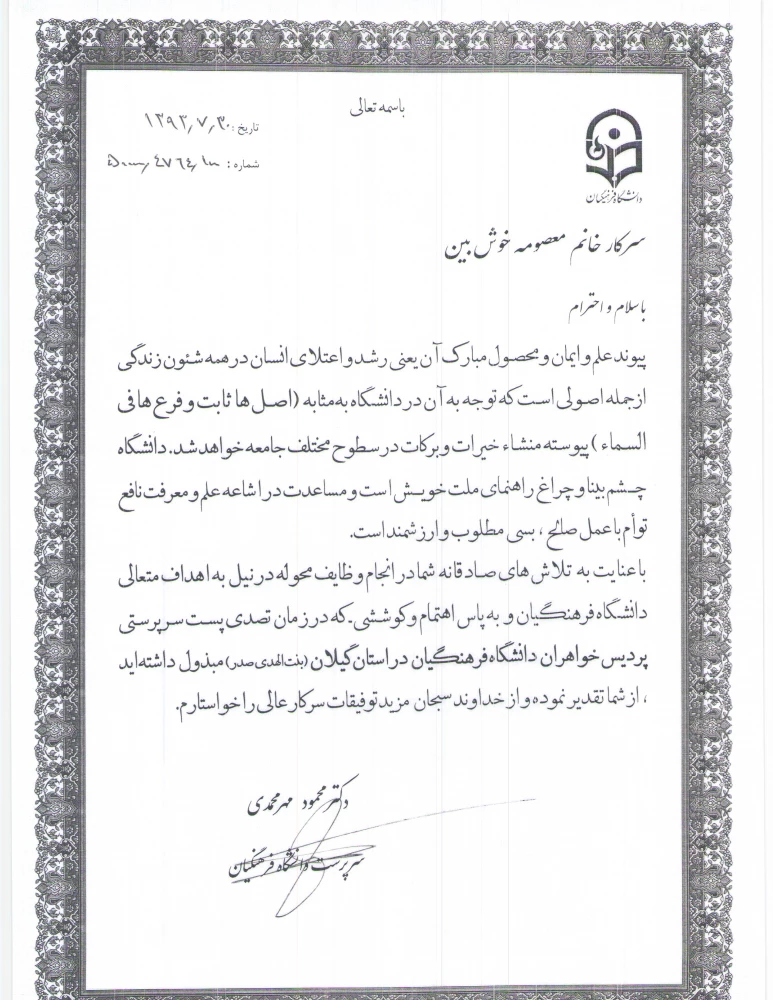 باسمه تعالی
تاریخ: ۱۳۹۳/۷/۳۰
شماره:
دانشگاه فرهنگیان
سرکار خانم معصومه خوش بین
با سلام و احترام
پیوند علم و ایمان و محصول مبارک آن یعنی رشد و اعتلای انسان در همه شئون زندگی
از جمله اصولی است که توجه به آن در دانشگاه به مثابه (اصل ها ثابت و فرع ها فی
السماء) پیوسته منشاء خیرات و برکات در سطوح مختلف جامعه خواهد شد. دانشگاه
چشم بینا و چراغ راهنمای ملت خویش است و مساعدت در اشاعه علم و معرفت نافع
توأم با عمل صالح، بسی مطلوب و ارزشمند است.
با عنایت به تلاش های صادقانه شما در انجام وظایف محوله در نیل به اهداف متعالی
دانشگاه فرهنگیان و به پاس اهتمام و کوششی که در زمان تصدی پست سرپرستی
پردیس خواهران دانشگاه فرهنگیان در استان گیلان (بنت الهدی صدر) مبذول داشته اید
، از شما تقدیر نموده و از خداوند سبحان مزید توفیقات سرکار عالی را خواستارم.
دکتر محمود مهرمحمدی
سرپرست دانشگاه فرهنگیان